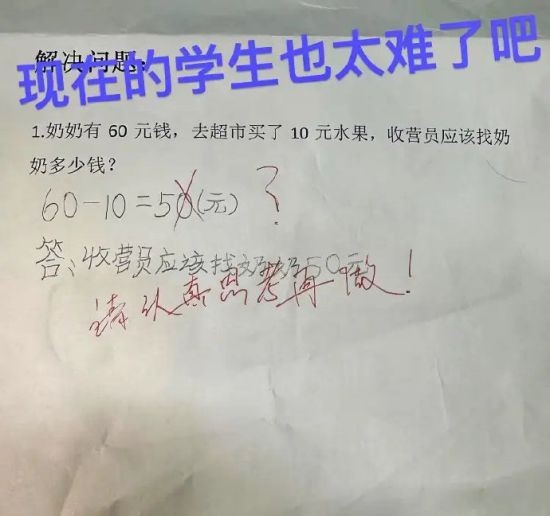 现在的学生也太难了吧
解决问题:
1.奶奶有 60 元钱，去超市买了 10 元水果，收营员应该找奶
奶多少钱？
60-10=50(元) ?
答：收营员应该找奶奶50元
请认真思考再做！